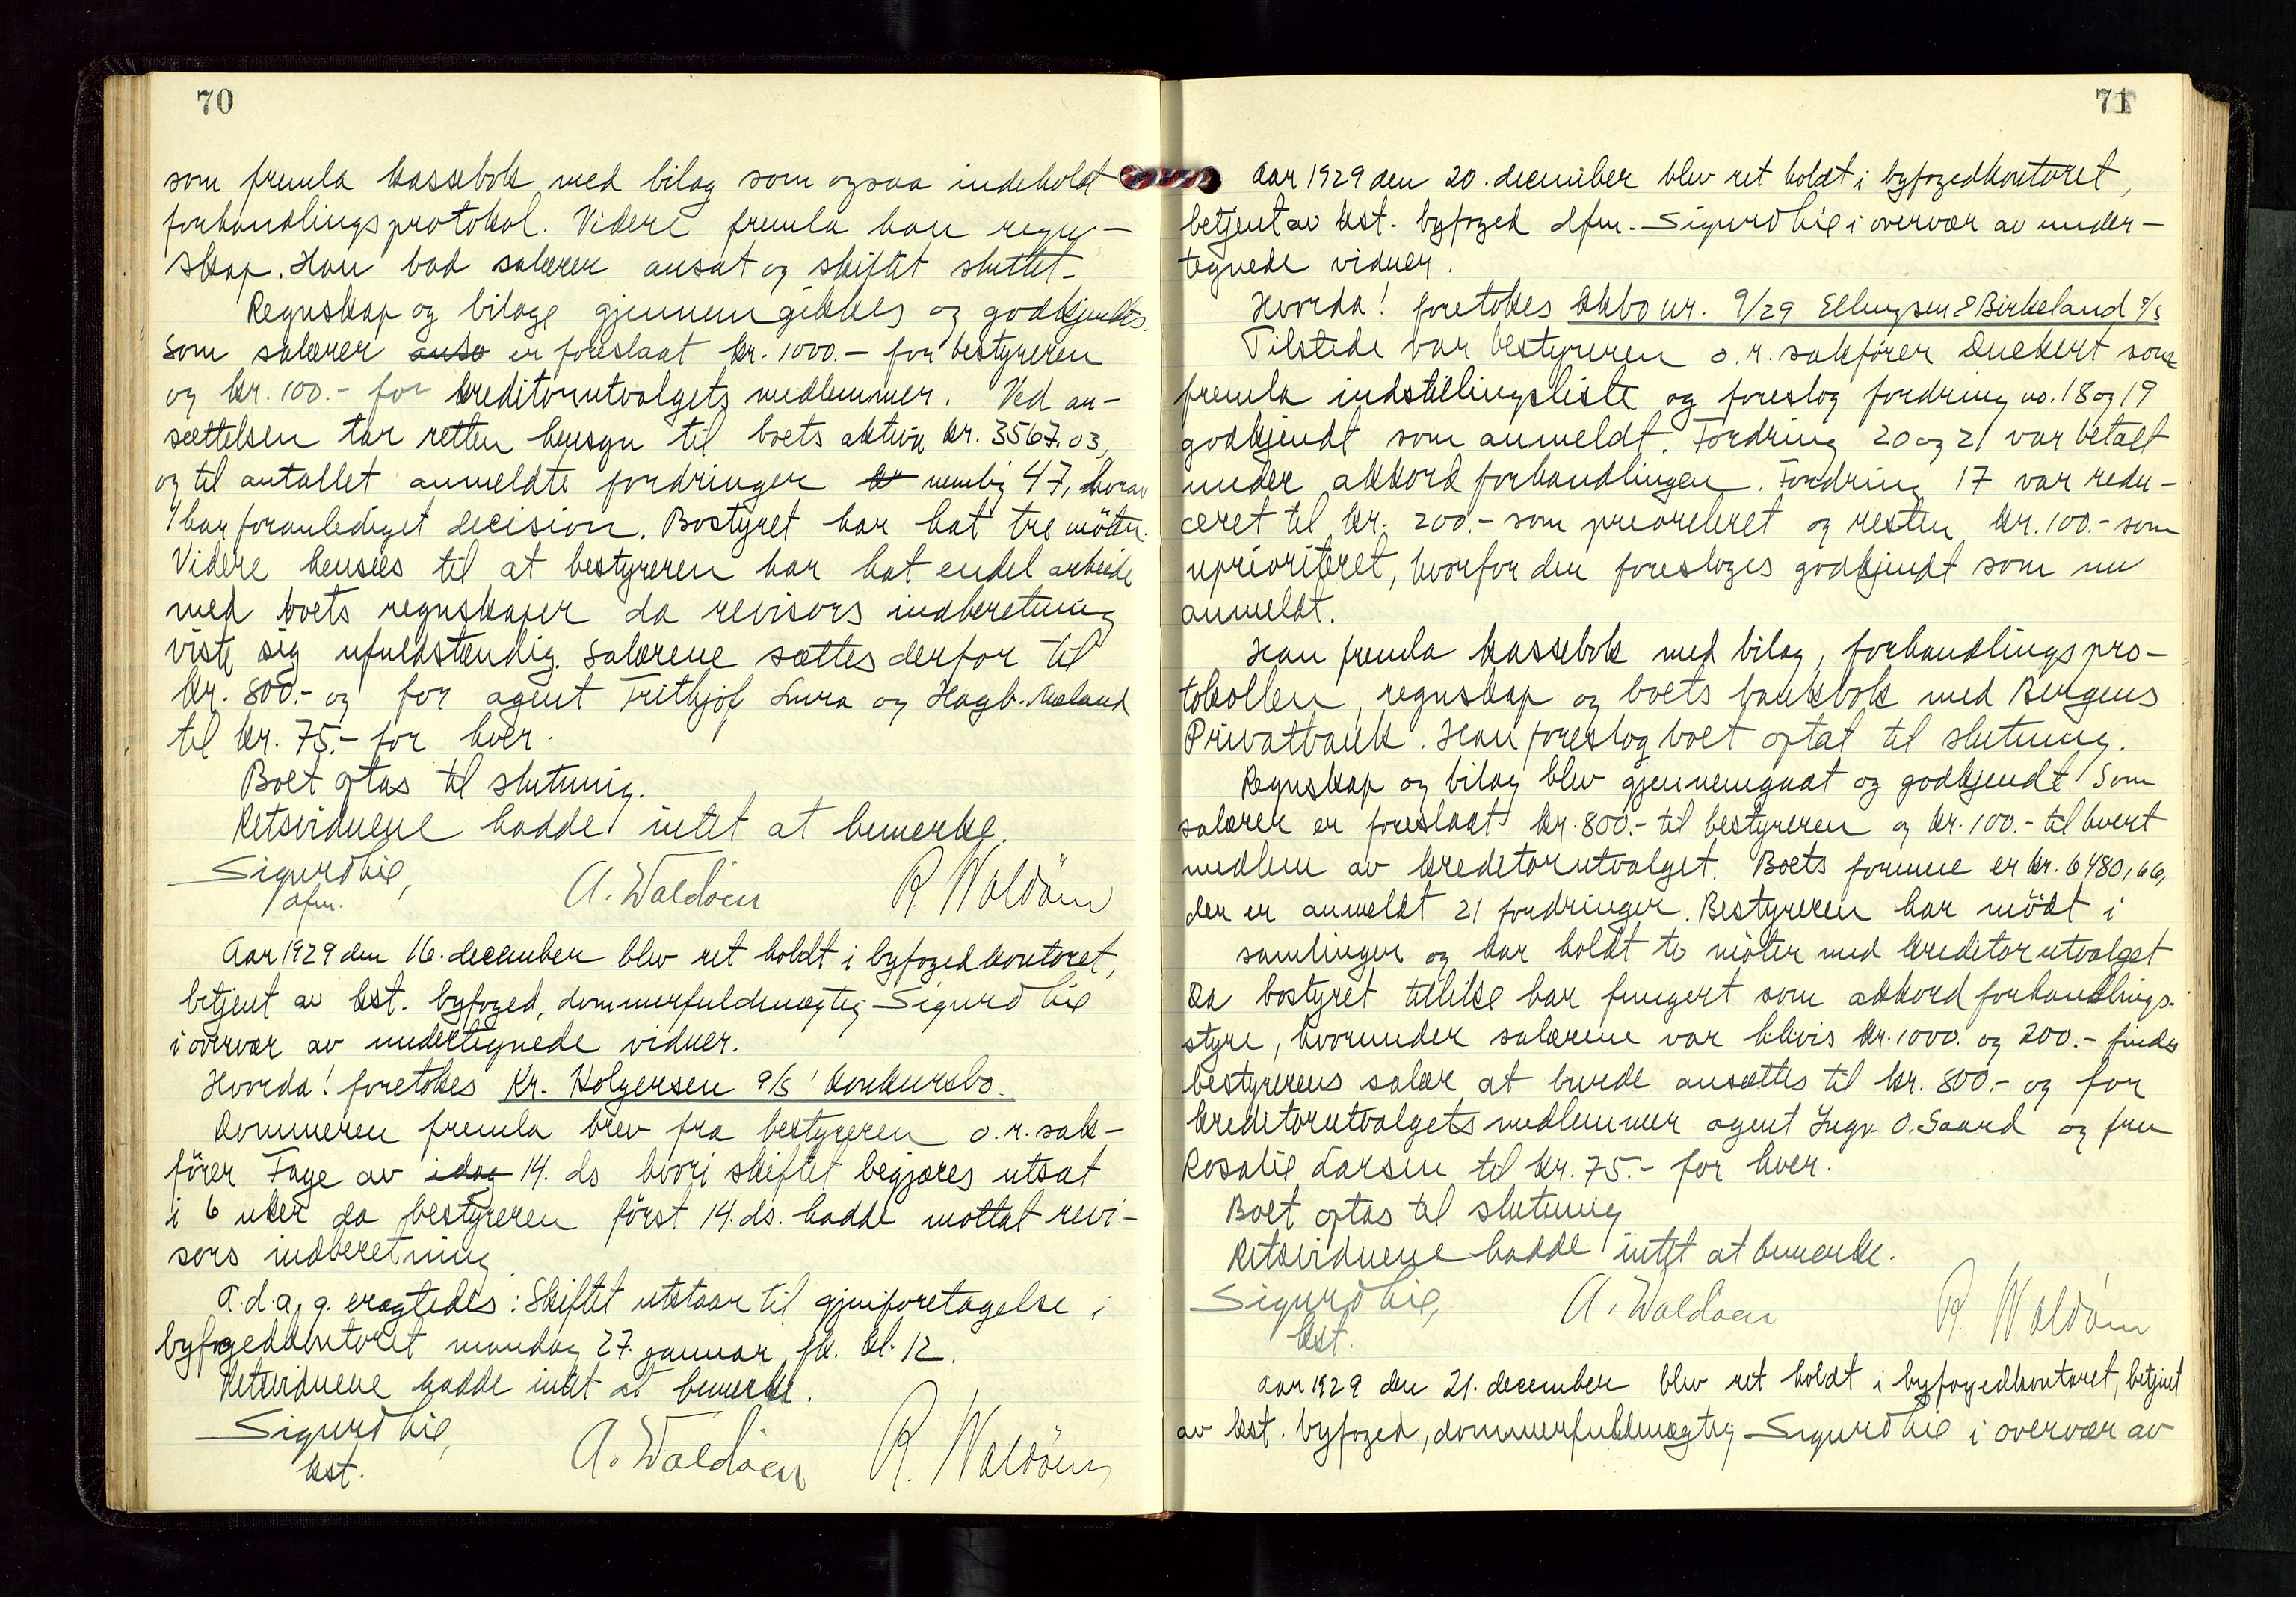 70
som fremla kassebok med bilag som ogsaa indeholdt
forhandlingsprotokol. Videre fremla han regn-
skap. Han bad salærer ansat og skiftet sluttet.
Regnskap og bilage gjennemgikkes og godkjendtes.
Som salærer er foreslaat kr. 1000.- for bestyreren
og kr. 100.- for kreditorutvalgets medlemmer. Ved an-
sættelsen tar retten hensyn til boets aktiva kr. 3567.03,
og til antallet anmeldte fordringer nemlig 47, hvorav
1 har foranlediget decision. Bostyret har hat tre möter.
Videre hensees til at bestyreren har hat endel arbeide
med boets regnskaper da revisors indberetning
viste sig ufuldstændig. Salærene sættes derfor til
kr. 800.- og for agent Trithjof Lura og Hagb. Mæland
til kr. 75.- for hver.
Boet optas til slutning.
Retsvidnene hadde intet at bemerke.
Sigurd Lie, A. Waldöen R. Waldöen
dfm.
Aar 1929 den 16. december blev ret holdt i byfogedkontoret,
betjent av kst. byfoged, dommerfuldmægtig Sigurd Lie
i overvær av undertegnede vidner.
Hvorda! foretokes Kr. Holgersen A/S' konkursbo.
Dommeren fremla brev fra bestyreren o.r.sak-
förer Fage av idag 14. ds hvori skiftet begjæres utsat
i 6 uker da bestyreren först 14. ds. hadde mottat revi-
sors indberetning
A.d.a.g. eragtedes: Skiftet utstaar til gjenforetagelse i
byfogedkontoret mandag 27. januar fk. kl. 12.
Retsvidnene hadde intet at bemerke.
Sigurd Lie, A. Waldöen R. Waldöen
kst.
71
Aar 1929 den 20. december blev ret holdt i byfogedkontoret,
betjent av kst. byfoged dfm. Sigurd Lie i overvær av under-
tegnede vidner.
Hvorda! foretokes Akbo nr. 9/29 Ellingsen & Birkeland A/S
Tilstede var bestyreren o.r.sakförer Duckert som
fremla indstillingsliste og foreslog fordring no. 18 og 19
godkjendt som anmeldt. Fordring 20 og 21 var betalt
under akkordforhandlingen. Fordring 17 var redu-
ceret til kr. 200.- som prioriteret og resten kr. 100.- som
uprioriteret, hvorfor den foresloges godkjendt som nu
anmeldt.
Han fremla kassebok med bilag, forhandlingspro-
tokollen, regnskap og boets bankbok med Bergens
Privatbank. Han foreslog boet optat til slutning.
Regnskap og bilag blev gjennemgaat og godkjendt. Som
salærer er foreslaat kr. 800.- til bestyreren og kr. 100.- til hvert
medlem av kreditorutvalget. Boets formue er kr. 6480,66,
der er anmeldt 21 fordringer. Bestyreren har mödt i
samlinger og har holdt to möter med kreditorutvalget
Da bostyret tillike har fungert som akkordforhandlings-
styre, hvorunder salærene var hhvis kr. 1000. og 200.- findes
bestyrerens salær at burde ansættes til kr. 800.- og for
kreditorutvalgets medlemmer agent Ingv. O. Saard og fru
Rosalie Larsen til kr. 75.- for hver.
Boet optas til slutning
Retsvidnene hadde intet at bemerke.
Sigurd Lie, A. Waldöen R. Waldöen
kst.
Aar 1929 den 21. december blev ret holdt i byfogedkontoret, betjent
av kst. byfoged, dommerfuldmægtig Sigurd Lie i overvær av